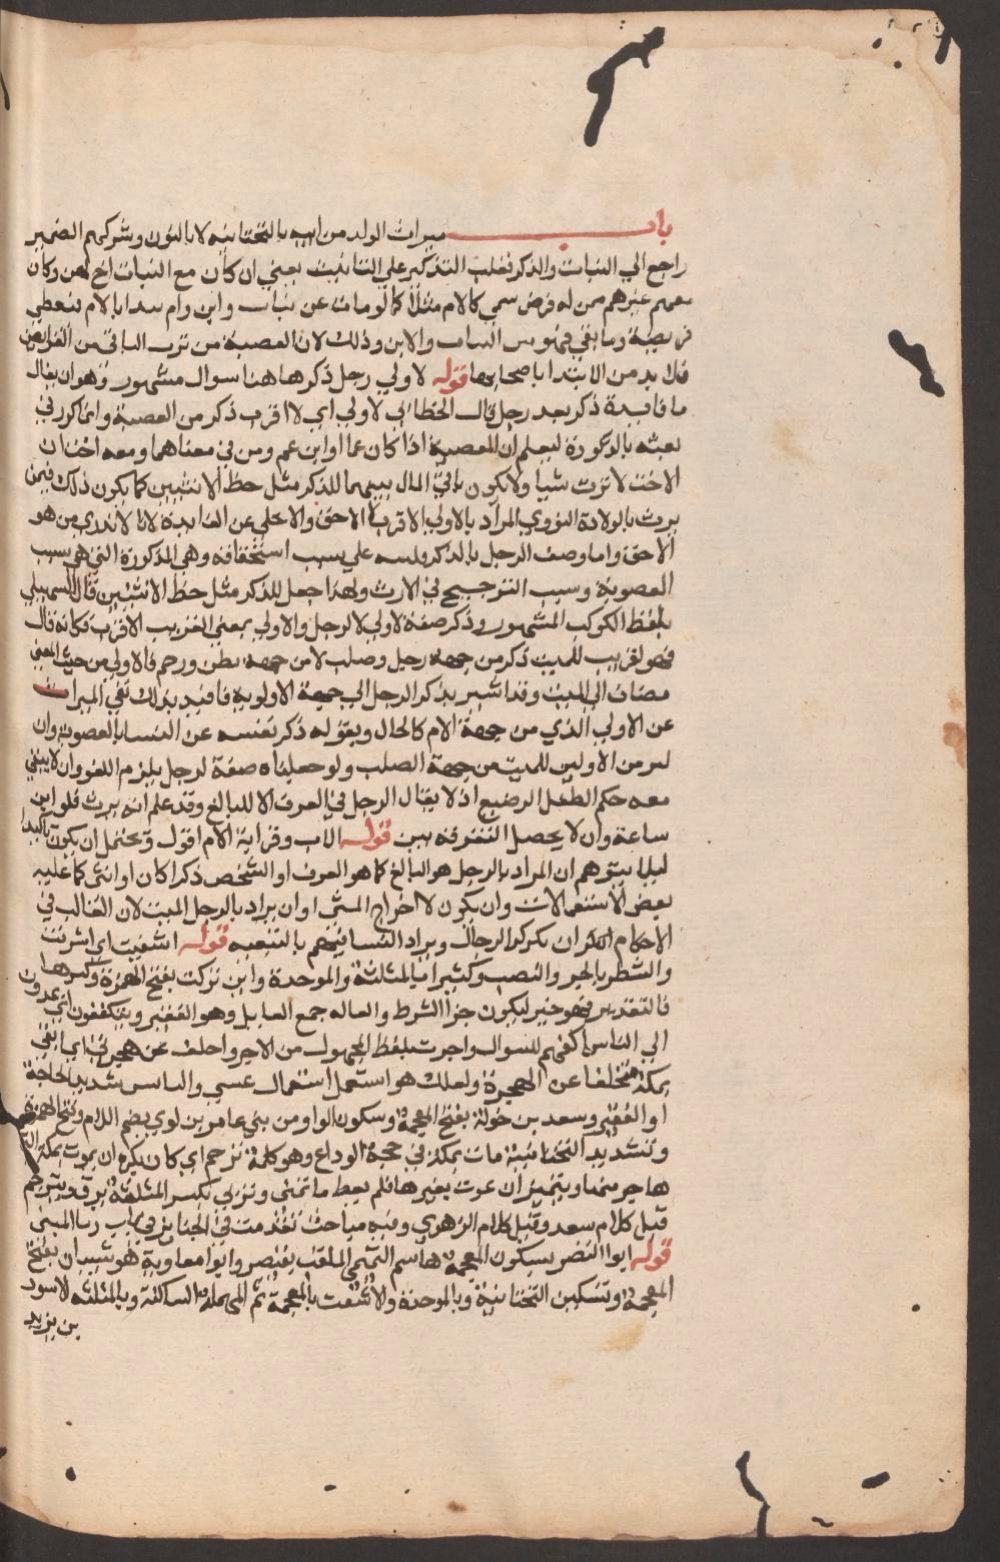 باب ميراث الولد من ابيه بالتحتانيه لا بالنون وشركهم الضمير
راجع الي البنات والذكر فغلب التذكير علي التانيث يعني ان كان مع البنات اخ لهن وكان
معهم غيرهم ممن له فرض سمي كالام مثلا كما لو مات عن بنات وابن وام يبدا بالام فتعطي
فريضة وما بقي فهو بين البنات والابن وذلك لان العصبة من ترث الباقي من الفرايض
فلا بد من الابتدا باصحابها قوله لاولي رجل ذكر هاهنا سوال مشهور وهو ان يقال
ما فايدة ذكر بعد رجل قال الخطابي لاولي اي لا اقرب ذكر من العصبة وانما كرر في
نعته بالذكورة ليعلم ان العصبة اذا كان عما او ابن عم ومن في معناهما ومعه اخت ان
الاخت لا ترث شيا ولا يكون باقي المال بينهما للذكر مثل حظ الانثيين كما يكون ذلك فيمن
يرث بالولادة النووي المراد بالاولي الاقرب لا الاحق والا خلي عن الفايدة لانا لا ندري من هو
الاحق واما وصف الرجل بالذكر فلسه علي سبب استحقاقه وهي الذكورة التي هي سبب
العصوبة وسبب الترجيح في الارث ولهذا جعل للذكر مثل حظ الانثيين قال السهيلي
بلفظ الكوكب المشهور وذكر صفة لاولي لا لرجل والاولي بمعني القريب الاقرب فكانه قال
فهو لقريب للميت ذكر من جهة رجل وصلب لا من جهة بطن ورحم فالاولي من حيث المعني
مضاف الي الميت وقد اشير بذكر الرجل الي جهة الاولوية فافيد بذلك نفي الميراث
عن الاولي الذي من جهة الام كالخال وبقوله ذكر نفسه عن النسا بالعصوبة وان
من الاولين للميت من جهة الصلب ولو جعلناه صفة لرجل يلزم اللغو وان لا يبقي
معه حكم الطفل الرضيع اذ لا يقال الرجل في العرف الا للبالغ وقد علم انه يرث فلو ابن
ساعة وان لا يحصل التفرقة بين قوله الاب وقرابة الام اقول وتحتمل ان يكون تاكيدا
ليلا يتوهم ان المراد بالرجل هو البالغ كما هو العرف او الشخص ذكرا كان او انثي كما عليه
بعض الاستعمالات وان يكون لاخراج المنثي او ان يراد بالرجل الميت لان الغالب في
الاحكام ان يذكر الرجال ويراد النسا فيهم بالتبعيه قوله اشفيت اي اشرفت
والشطر بالجر والنصب وكثيرا بالمثلثة والموحدة وان تركت بفتح الهمزة وكسرها
فالتقدير فهو خير ليكون جزا الشرط والعاله جمع العايل وهو الفقير ويتكففون اي يمدون
الي الناس اكفهم للسوال واجرت بلفظ المجهول من الاجر واخلف عن هجرتي اي ابقي
بمكة متخلفا عن الهجرة ولعلك هو استعمل استعمال عسي والباس شديد الحاجة
او الفقير وسعد بن خولة بفتح المعجمة وسكون الواو من بني عامر بن لوي بضم اللام وفتح الهمزة
وتشديد التحتانية مات بمكة في حجة الوداع وهو كلمة ترحم اي كان يكره ان يموت بمكة التي
هاجر منها ويتمني ان يموت بغيرها فلم يعط ما تمني وترثي بكسر المثلثة يرق ويترحم
قيل كلام سعد وقيل كلام الزهري وفيه مباحث تقدمت في الجنايز في باب رثا النبي
قوله ابو النضر بسكون المعجمة هاشم التميمي الملقب بقيصر وابو معاوية هو شيبان بفتح
المعجمة وتسكين التحتانية وبالموحدة والاشعث بالمعجمة ثم المهملة الساكنة وبالمثلثه الاسود
بن يزيد